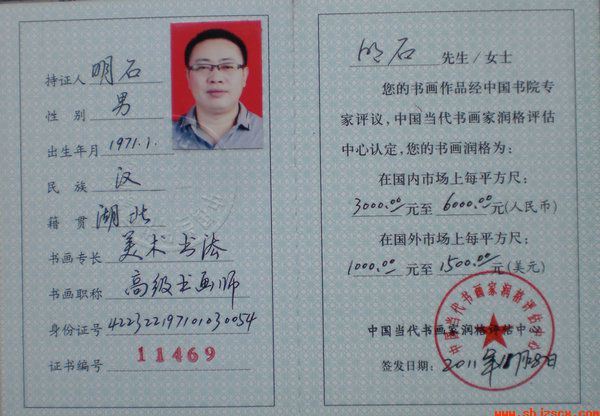 持证人 明石
性别 男
出生年月 1971.1.
民族 汉
籍贯 湖北
书画专长 美术 书法
书画职称 高级书画师
身份证号 422322197101030054
证书编号 11469
明石 先生/女士
您的书画作品经中国书院专
家评议，中国当代书画家润格评估
中心认定，您的书画润格为：
在国内市场上每平方尺：
3000.00元至 6000.00元(人民币)
在国外市场上每平方尺：
1000.00元至 1500.00元(美元)
中国当代书画家润格评估中心
中国当代书画家润格评估中心
签发日期：2011年
www.shjzscx.com